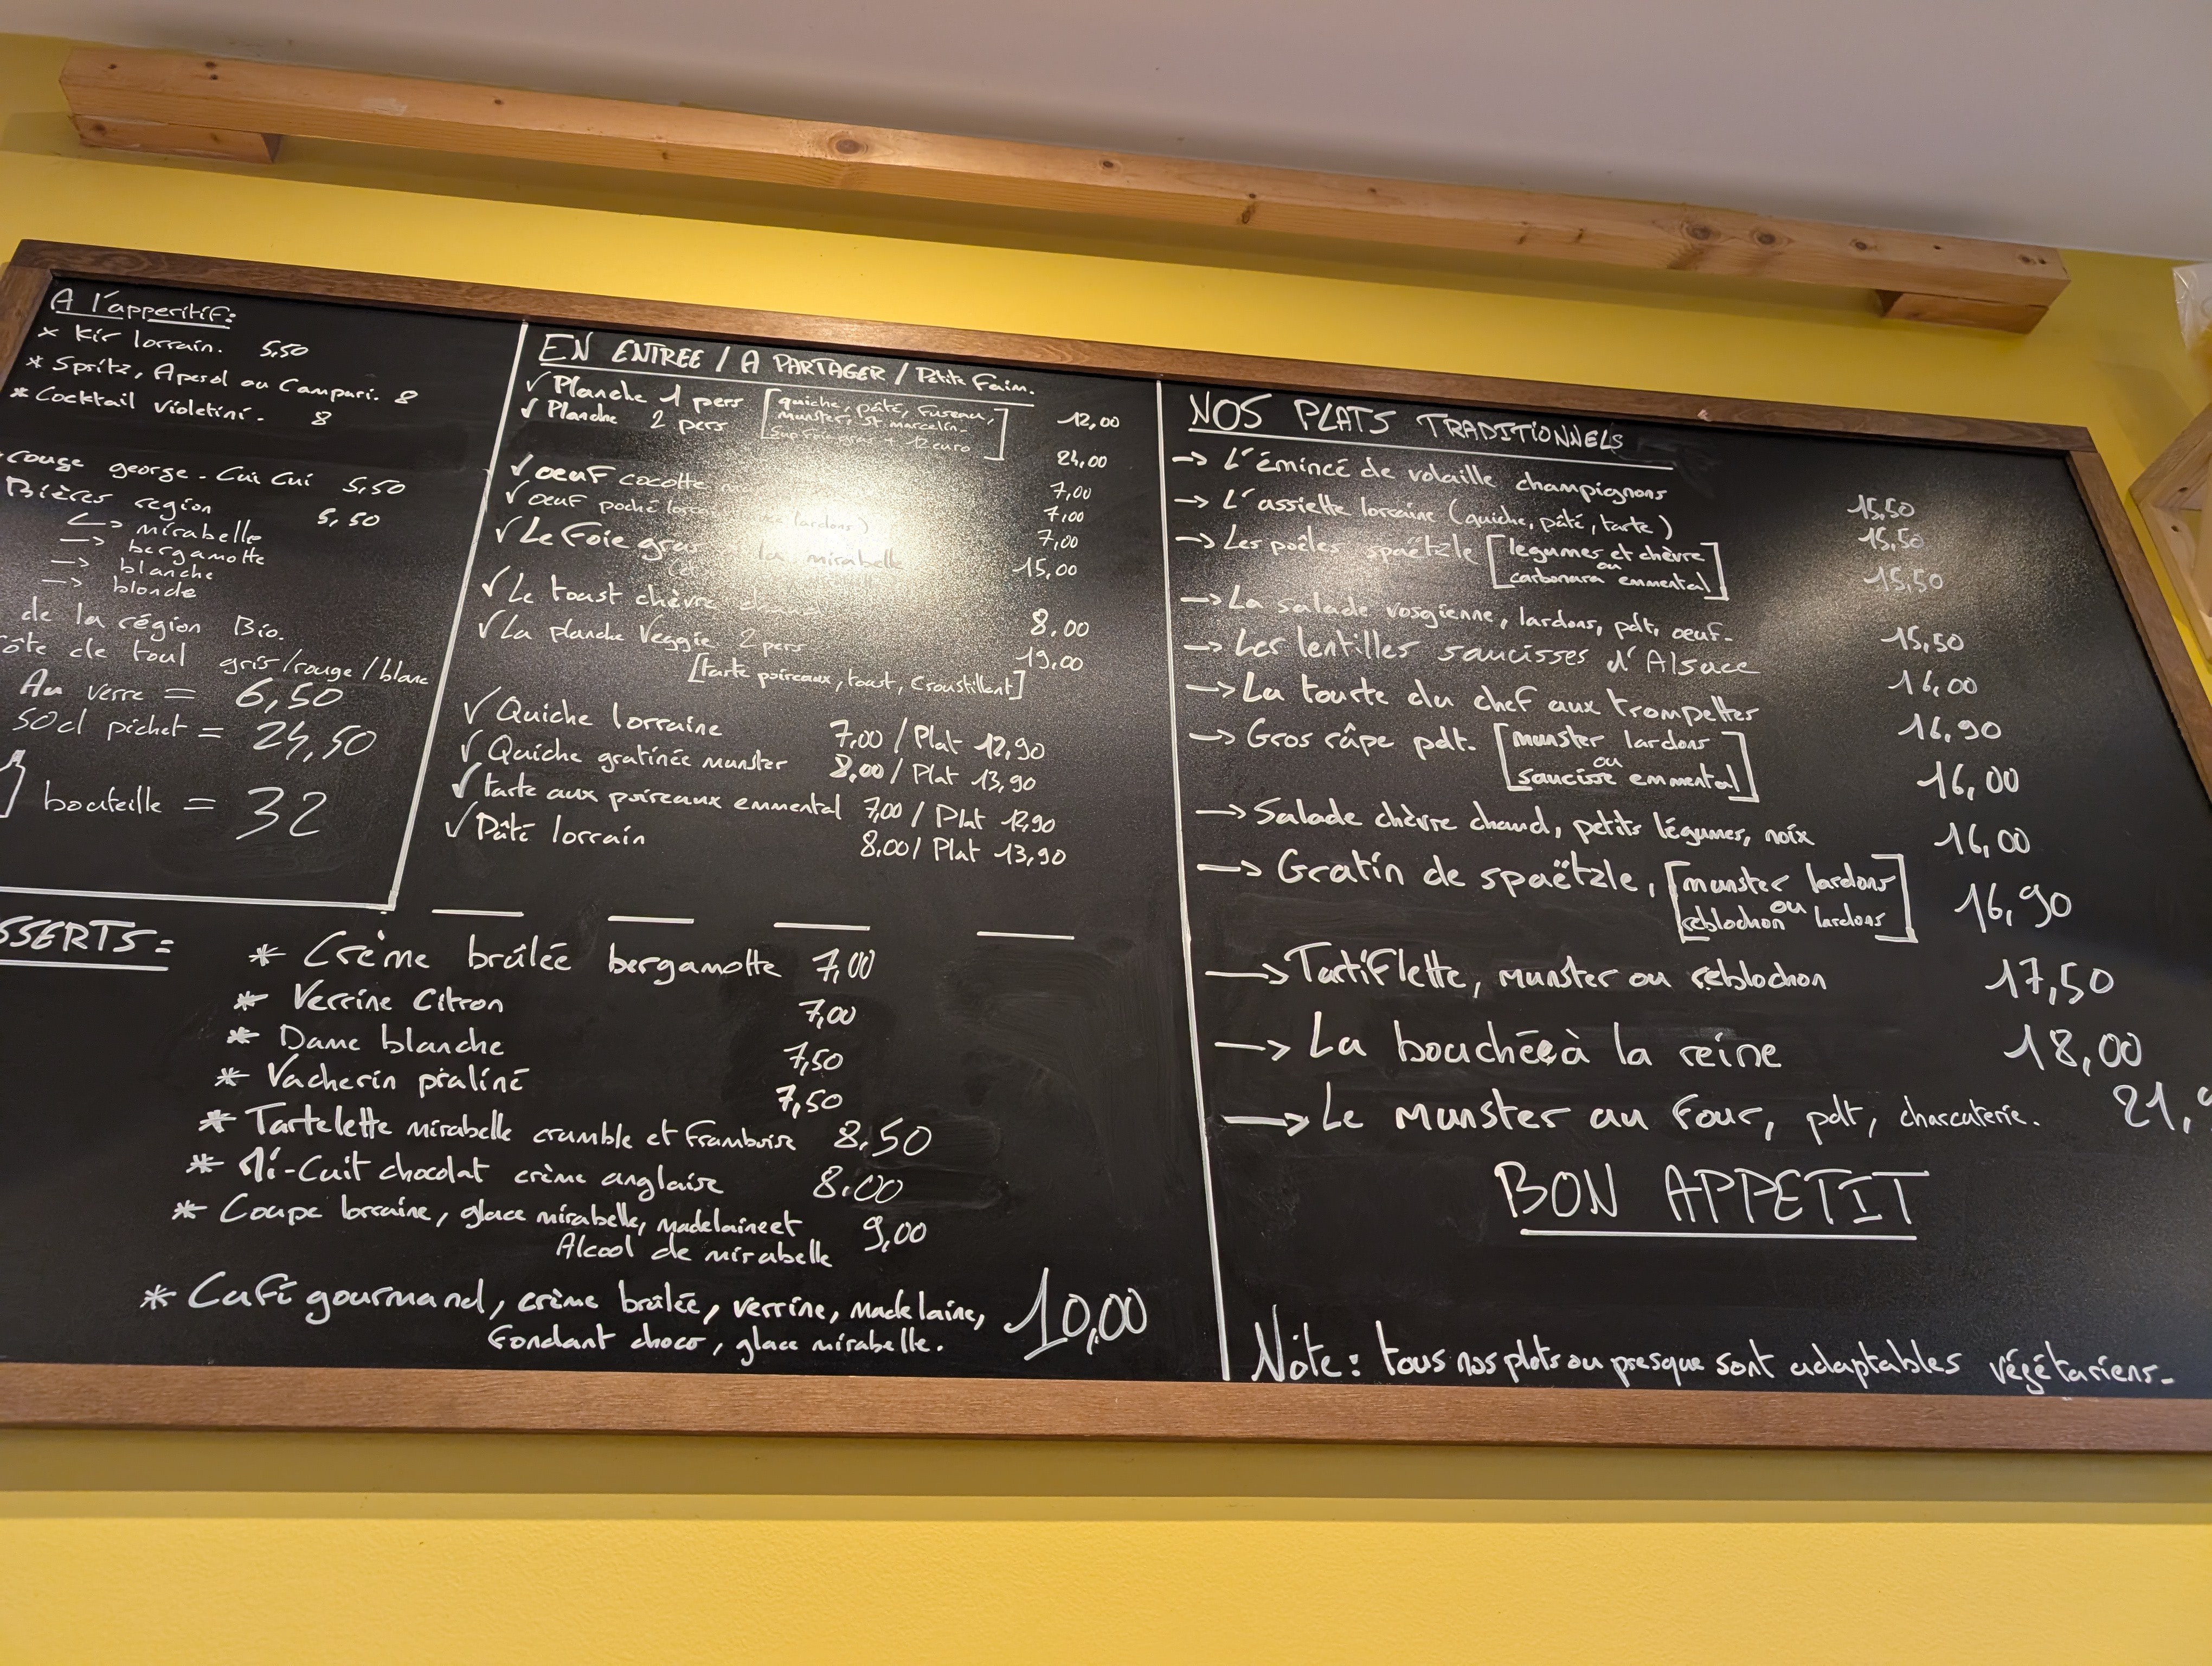 A l'apperitif:
* Kir lorrain. 5,50
* Spritz, Aperol ou Campari. 8
* Cocktail Violetini. 8
rouge george. Cui Cui 5,50
Bières region 5,50
→ mirabelle
→ bergamotte
→ blanche
→ blonde
de la région Bio.
ôte de toul gris/rouge/blanc
Au verre = 6,50
50cl pichet = 24,50
bouteille = 32
EN ENTREE / A PARTAGER / Petite Faim.
✓ Planche 1 pers [quiche, pâté, Fuseau, 12,00
✓ Planche 2 pers munster, St marcelin. 24,00
Sup Foie gras + 12 euro]
✓ oeuf cocotte 7,00
✓ oeuf poché lorrain lardons) 7,00
7,00
✓ Le Foie gras la mirabelle 15,00
✓ Le toast chèvre chaud 8.00
✓ La planche Veggie 2 pers 19,00
[tarte poireaux, toast, Croustillent]
✓ Quiche lorraine 7,00 / Plat 12,90
✓ Quiche gratinée munster 8,00 / Plat 13,90
✓ tarte aux poireaux emmental 7,00 / Plat 12,90
✓ Pâté lorrain 8.00 / Plat 13,90
SSERTS:
* Crème brûlée bergamotte 7,00
* Verrine Citron 7,00
* Dame blanche 7,50
* Vacherin praliné 7,50
* Tartelette mirabelle crumble et framboise 8,50
* Mi-Cuit chocolat crème anglaise 8.00
* Coupe lorraine, glace mirabelle, madelaine et 9,00
Alcool de mirabelle
* Café gourmand, crème brûlée, verrine, madelaine, 10,00
Fondant choco, glace mirabelle.
NOS PLATS TRADITIONNELS
→ L'émincé de volaille champignons 15,50
→ L'assiette lorraine (quiche, pâté, tarte) 15,50
→ Les poêles spaëtzle [légumes et chèvre 15,50
ou
carbonara emmental]
→ La salade vosgienne, lardons, pdt, oeuf. 15,50
→ Les lentilles saucisses d'Alsace 16,00
→ La tourte du chef aux trompettes 16,90
→ Gros râpe pdt. [munster lardons 16,00
ou
saucisse emmental]
→ Salade chèvre chaud, petits légumes, noix 16,00
→ Gratin de spaëtzle, [munster lardons 16,90
ou
reblochon lardons]
→ Tartiflette, munster ou reblochon 17,50
→ La bouchée à la reine 18,00
→ Le munster au Four, pdt, charcuterie. 21,
BON APPETIT
Note: tous nos plats ou presque sont adaptables végétariens.